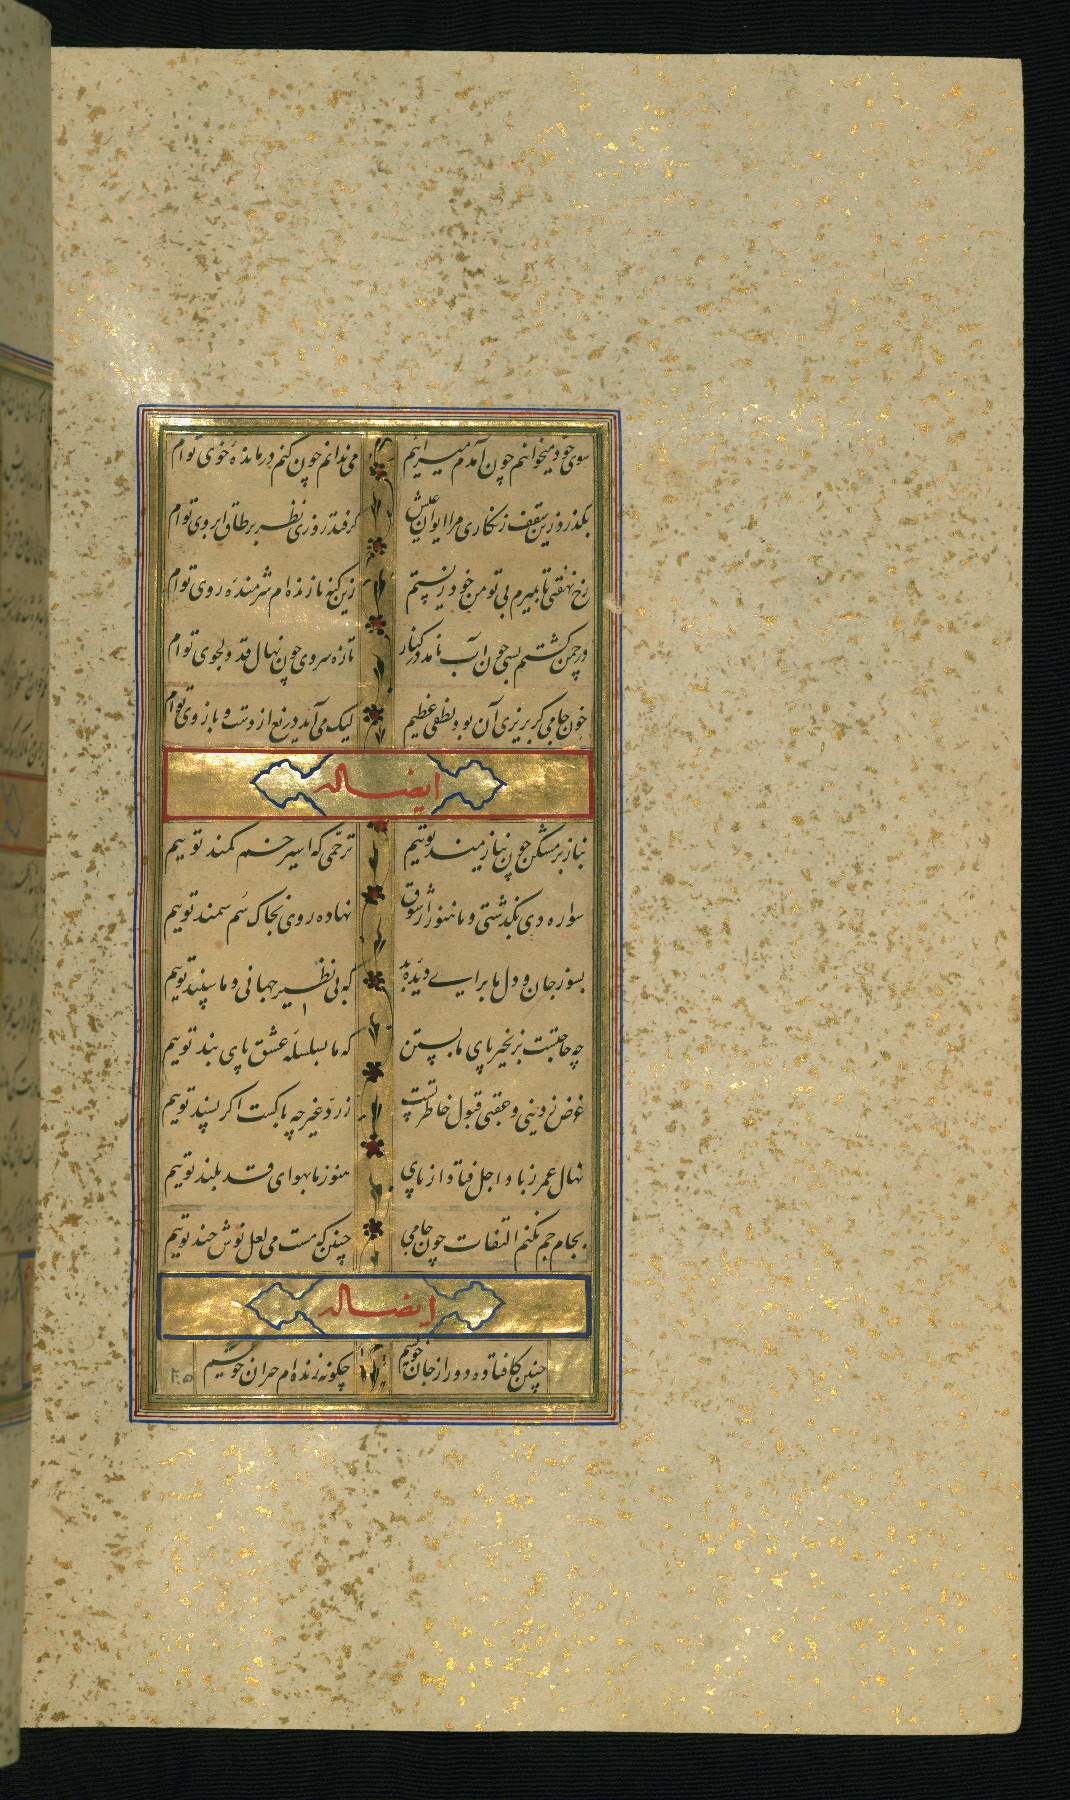 سوی خود میخوانیم چون آمدم میرانیم می ندانم چون کنم درمانده خوی توام
بگذرد زین سقف زنگاری مرا ایوان عیش گر فتد روزی نظر بر طاق ابروی توام
رخ نهفتی تا بمیرم بی تو من خود زیستم زین گنه تا زنده ام شرمنده روی توام
در چمن گشتم بسی چون آب نامد در کنار تازه سروی چون نهال قد دلجوی توام
خون جامی گر بریزی آن بود لطفی عظیم لیک می آید دریغ از دست و بازوی توام
ایضا له
نیاز بر مشکن چون نیازمند توییم ترحمی که اسیر خم کمند توییم
سواره دی بگذشتی و ما هنوز از شوق نهاده روی بخاک سم سمند توییم
بسوز جان و دل ما برای دیده بد که بی نظیر جهانی و ما سپند توییم
چه حاجتست بزنجیر پای ما بستن که ما بسلسله عشق پای بند توییم
غرض ز دینی و عقبی قبول خاطر تست ز رد غیر چه باکست اگر پسند توییم
نهال عمر ز باد اجل فتاد از پای هنوز ما بهوای قد بلند توییم
بجام جم نکنم التفات چون جامی چنین که مست می لعل نوش خند توییم
ایضا له
چنین کافتاده دور از جان خویشم چگونه زنده ام حیران خویشم